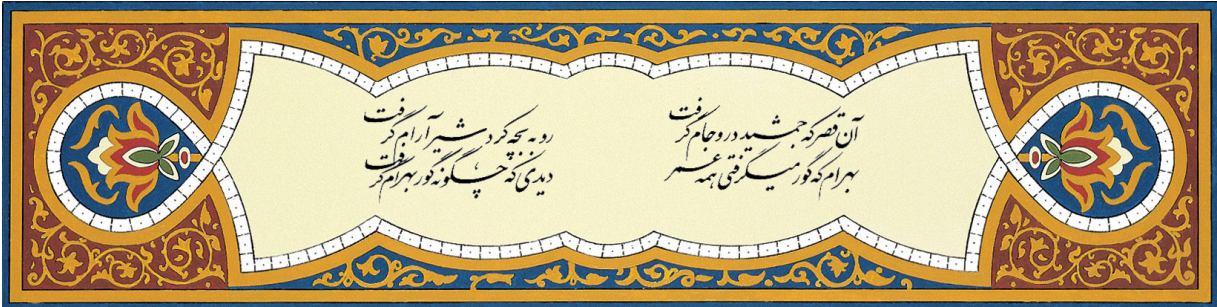 آن قصر که جمشید در و جام گرفت
روبه بچه کرد شیر آرام گرفت
بهرام که گور میگرفتی همه عمر
دیدی که چگونه گور بهرام گرفت